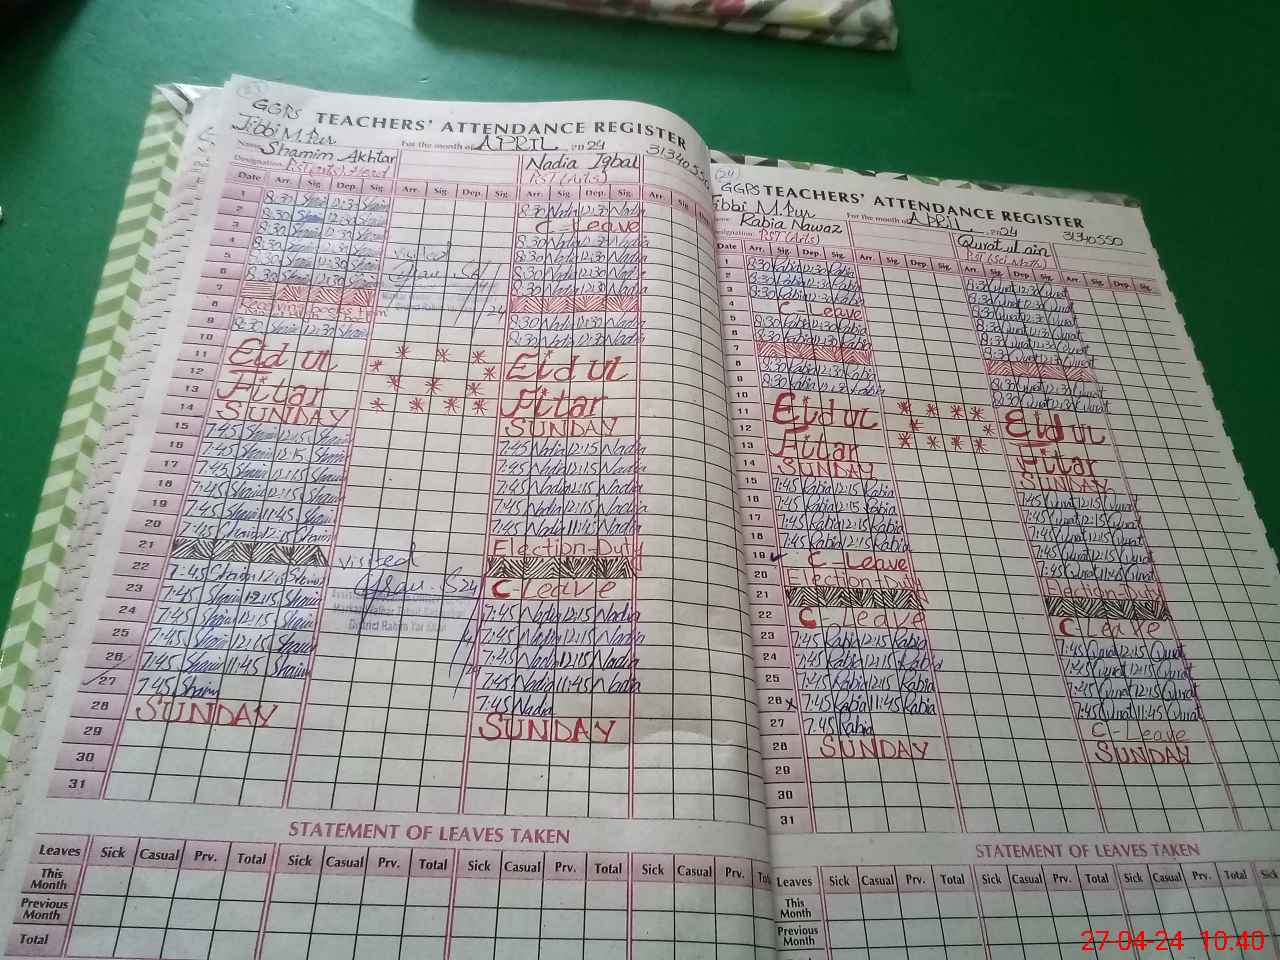 GGPS
Jibbi M. Pur
TEACHERS' ATTENDANCE REGISTER
Name Shamim Akhtar
For the month of APRIL 2024
Nadia Iqbal
Designation
PST (Arts)
Date Arr. Sig. Dep. Sig. Arr. Sig. Dep. Sig. Arr. Sig. Dep. Sig. Arr. Sig. Dep.
1 8:30 Sham 12:30 Sham 8:30 Nadia 12:30 Nadia
2 8:30 Sham 12:30 Sham C-Leave
3 8:30 Sham 12:30 Sham 8:30 Nadia 12:30 Nadia
4 8:30 Sham 12:30 Sham visited 8:30 Nadia 12:30 Nadia
5
6
7
8
9
10 8:30 Sham 12:30 Sham 8:30 Nadia 12:30 Nadia
11 Eid ul Eid ul
12
13 Fitar Fitar
14 SUNDAY SUNDAY
15 7:45 Sham 12:15 Sham 7:45 Nadia 12:15 Nadia
16 7:45 Sham 12:15 Sham 7:45 Nadia 12:15 Nadia
17 7:45 Sham 12:15 Sham 7:45 Nadia 12:15 Nadia
18 7:45 Sham 12:15 Sham 7:45 Nadia 12:15 Nadia
19 7:45 Sham 11:45 Sham 7:45 Nadia 11:45 Nadia
20 7:45 Sham 12:15 Sham Election-Duty
21 visited
22 7:45 Sham 12:15 Sham C-Leave
23 7:45 Sham 12:15 Sham 7:45 Nadia 12:15 Nadia
24 7:45 Sham 12:15 Sham 7:45 Nadia 12:15 Nadia
District Rahim Yar Khan
25 7:45 Sham 12:15 Sham 7:45 Nadia 12:15 Nadia
26 7:45 Sham 11:45 Sham 7:45 Nadia 11:45 Nadia
27 7:45 Sham 7:45 Nadia
28 SUNDAY SUNDAY
29
30
31
STATEMENT OF LEAVES TAKEN
Leaves Sick Casual Prv. Total Sick Casual Prv. Total Sick Casual Prv. Total Sick Casual Prv.
This Month
Previous Month
Total
(24)
GGPS TEACHERS' ATTENDANCE REGISTER
Jibbi M. Pur
For the month of APRIL 2024
31340550
Rabia Nawaz
Qurat ul ain
Designation PST (Arts)
PST (Sci, Math)
Date Arr. Sig. Dep. Sig. Arr. Sig. Dep. Sig. Arr. Sig. Dep. Sig. Arr. Sig. Dep. Sig.
1 8:30 Rabia 12:30 Rabia 8:30 Qurat 12:30 Qurat
2 8:30 Rabia 12:30 Rabia 8:30 Qurat 12:30 Qurat
3 8:30 Rabia 12:30 Rabia 8:30 Qurat 12:30 Qurat
4 C-Leave 8:30 Qurat 12:30 Qurat
5 8:30 Rabia 12:30 Rabia 8:30 Qurat 12:30 Qurat
6 8:30 Rabia 12:30 Rabia 8:30 Qurat 12:30 Qurat
7
8 8:30 Rabia 12:30 Rabia 8:30 Qurat 12:30 Qurat
9 8:30 Rabia 12:30 Rabia 8:30 Qurat 12:30 Qurat
10
11 Eid ul Eid ul
12
13 Fitar Fitar
14 SUNDAY SUNDAY
15 7:45 Rabia 12:15 Rabia 7:45 Qurat 12:15 Qurat
16 7:45 Rabia 12:15 Rabia 7:45 Qurat 12:15 Qurat
17 7:45 Rabia 12:15 Rabia 7:45 Qurat 12:15 Qurat
18 7:45 Rabia 12:15 Rabia 7:45 Qurat 12:15 Qurat
19 C-Leave 7:45 Qurat 11:45 Qurat
20 Election-Duty Election-Duty
21
22 C-Leave C Leave
23 7:45 Rabia 12:15 Rabia 7:45 Qurat 12:15 Qurat
24 7:45 Rabia 12:15 Rabia 7:45 Qurat 12:15 Qurat
25 7:45 Rabia 12:15 Rabia 7:45 Qurat 12:15 Qurat
26 7:45 Rabia 11:45 Rabia 7:45 Qurat 11:45 Qurat
27 7:45 Rabia C-Leave
28 SUNDAY SUNDAY
29
30
31
STATEMENT OF LEAVES TAKEN
Leaves Sick Casual Prv. Total Sick Casual Prv. Total Sick Casual Prv. Total Sick
This Month
Previous Month
27-04-24 10.40